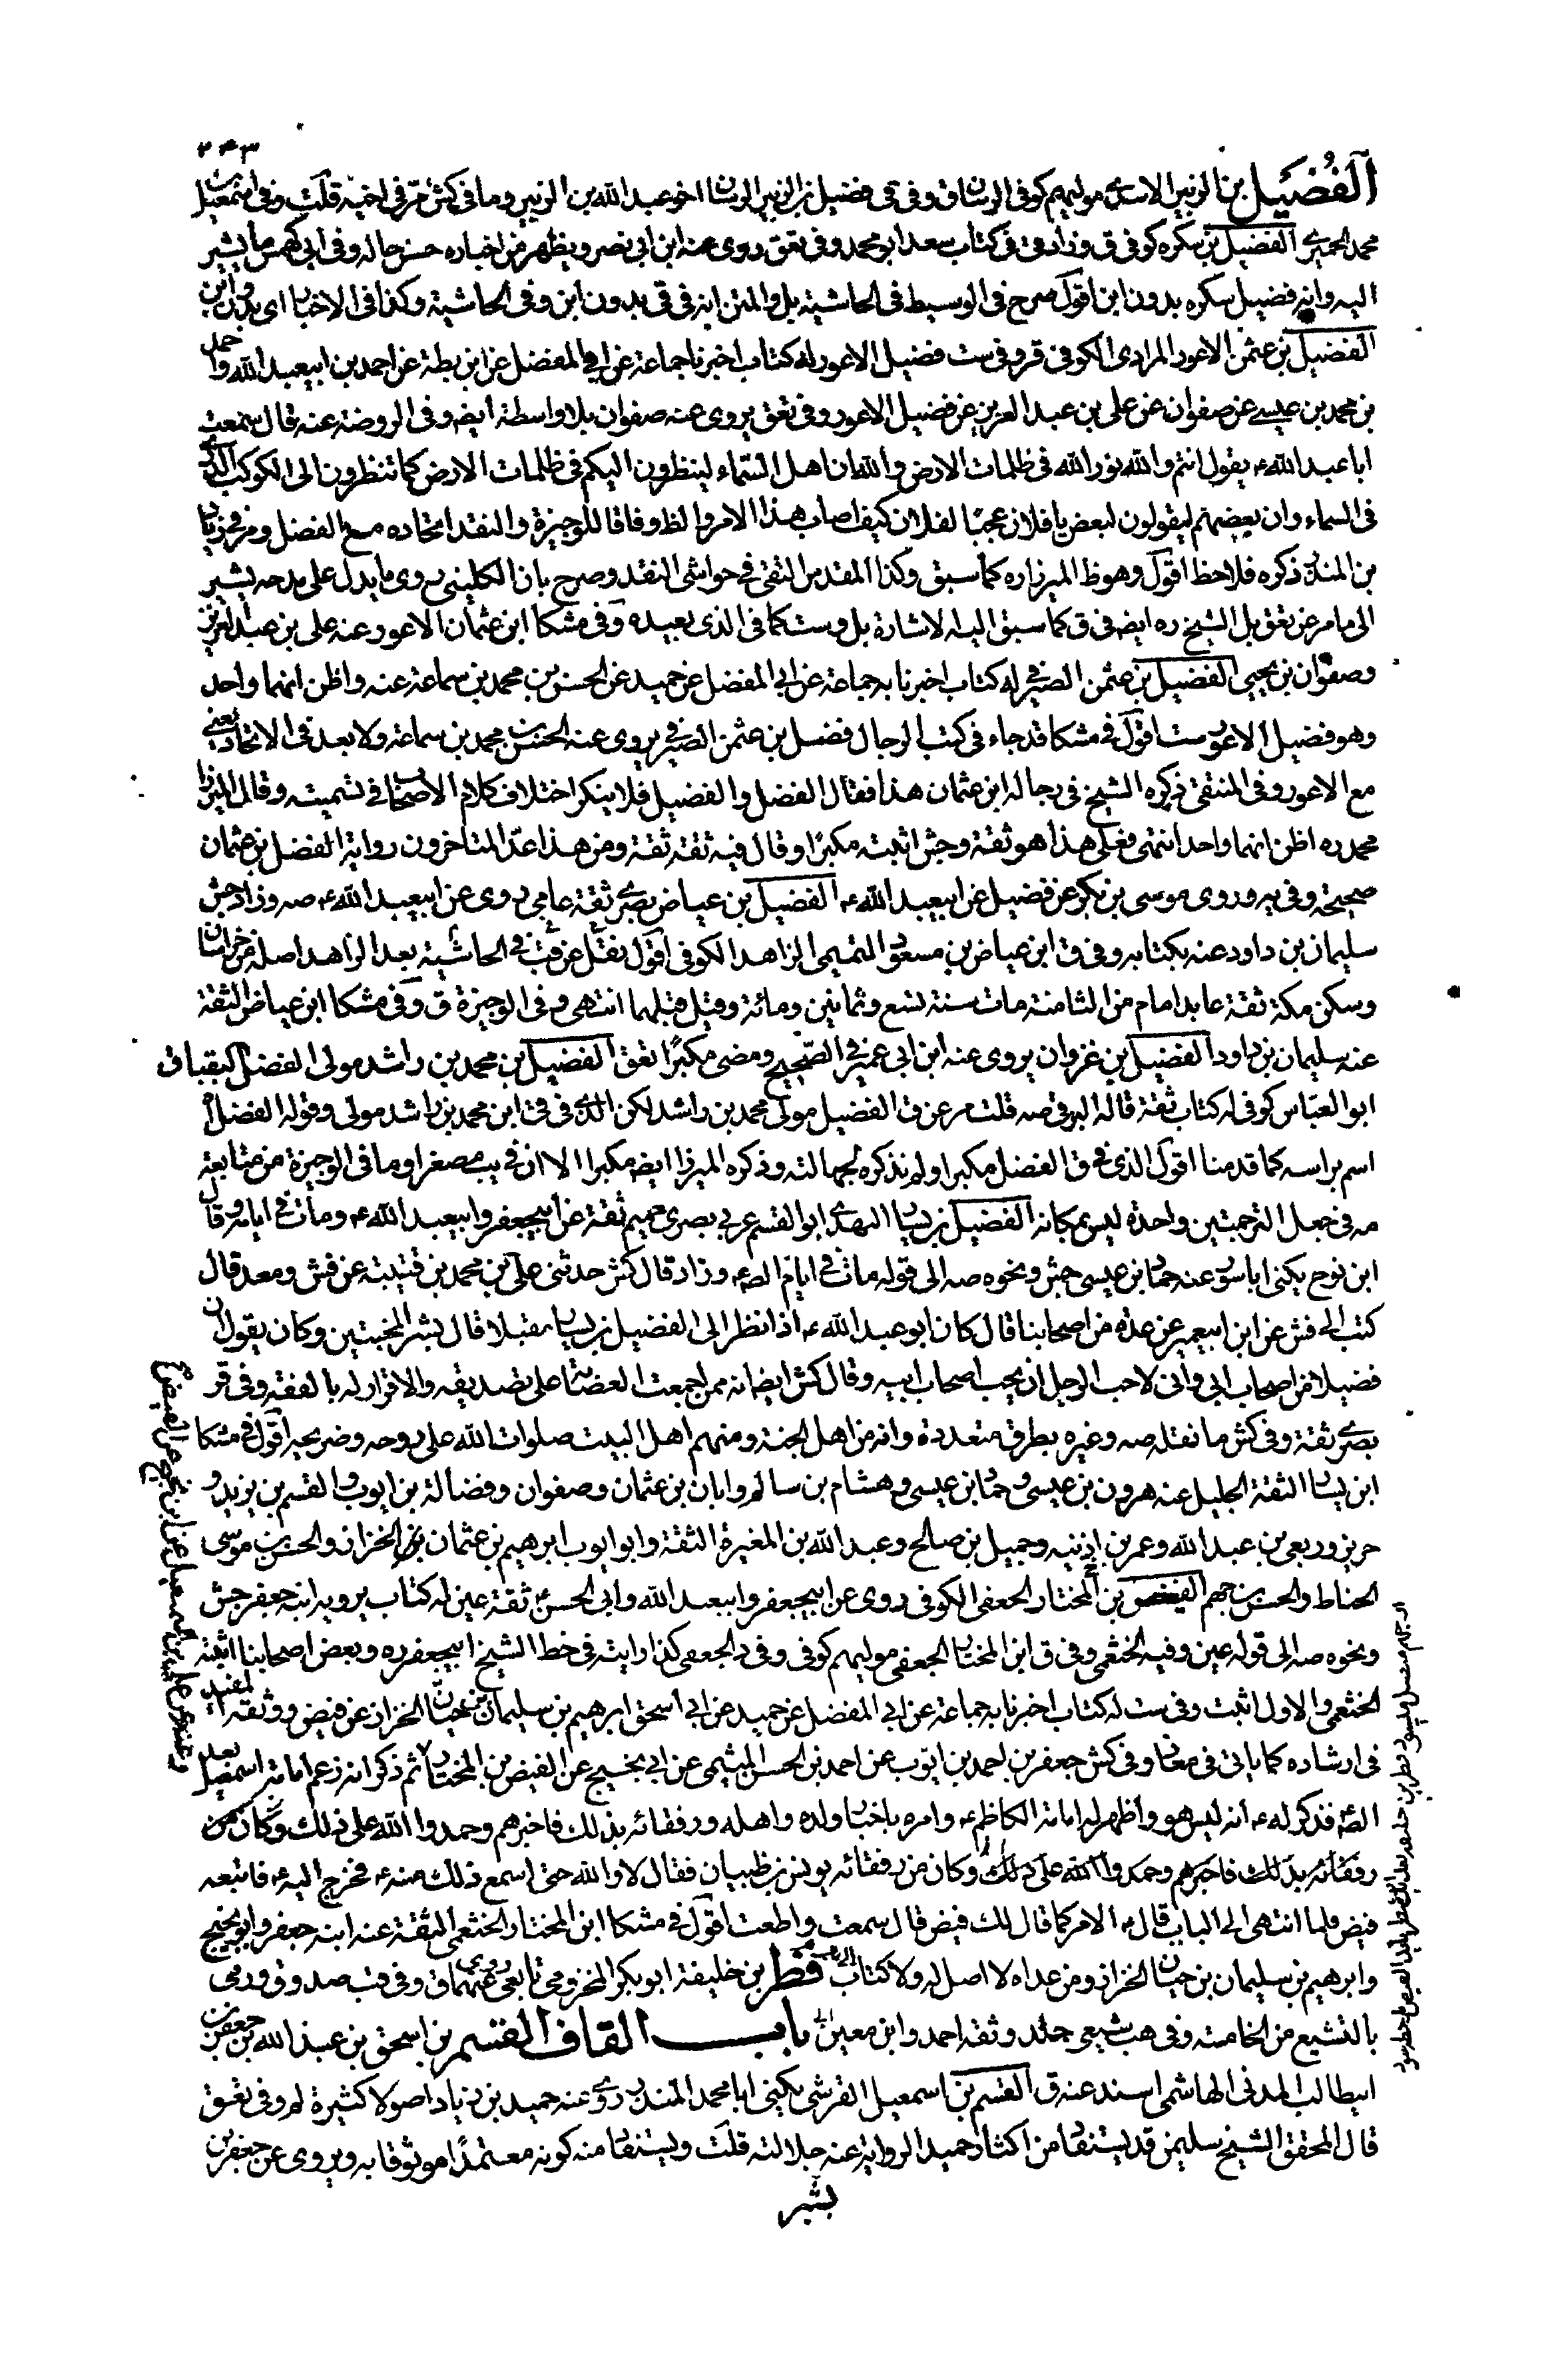 ٢٤٣
الفضيل بن الزبير الاسدى مولیهم كوفى الرسان ق وفى قى فضيل بن الزبير الرسان اخو عبد الله بن الزبير وما فى كش مرّ فى اخيه قلت وفى اسمعيل بن
محمد الحميرى الفضيل بن سكره كوفى ق وزاد قى فى كتاب سعد ابو محمد وفى تعق روى عنه ابن ابى نصر ويظهر من اخباره حسن حاله وفى ابى كهمس ما يشير
اليه وانه فضيل سكره بدون ابن اقول صرح فى الوسيط فى الحاشية بل والمتن انه فى قى بدون ابن وفى الحاشية وكذا فى الاخبار اى بدون ابن
الفضيل بن عثمن الاعور المرادى الكوفى قر وفى ست فضيل الاعور له كتاب اخبرنا جماعة عن ابى المفضل عن ابن بطة عن احمد بن ابيعبد الله واحمد
بن محمد بن عيسى عن صفوان عن على بن عبد العزيز عن فضيل الاعور وفى تعق يروى عنه صفوان بلا واسطة ايضه وفى الروضة عنه قال سمعت
ابا عبد الله ع يقول انتم والله نور الله فى ظلمات الارض والله ان اهل السماء لينظرون اليكم فى ظلمات الارض كما تنظرون الى الكوكب الدرى
فى السماء وان بعضهم ليقولون لبعض يا فلان عجبًا لفلان كيف اصاب هذا الامر والظ وفاقا للوجيزة والنقد اتحاده مع الفضل ومر فى زياد
بن المنذر ذكره فلاحظ اقول وهو ظ الميرزا ره كما سبق وكذا المقدس التقى فى حواشى النقد وصرح بان الكلينى روى ما يدل على مدحه يشير
الى ما مر عن تعق بل الشيخ ره ايضه فى ق كما سبق اليه الاشارة بل وست كما فى الذى بعيده وفى مشكا ابن عثمان الاعور عنه على بن عبد العزيز
وصفوان بن يحيى الفضيل بن عثمن الصيرفى له كتاب اخبرنا به جماعة عن ابى المفضل عن حميد عن الحسن بن محمد بن سماعة عنه واظن انهما واحد
وهو فضيل الاعور ست اقول فى مشكا قد جاء فى كتب الرجال فضيل بن عثمن الصيرفى يروى عنه الحسن بن محمد بن سماعة ولا بعد فى الاتحاد يعنى
مع الاعور وفى المنتقى ذكره الشيخ فى رجاله ابن عثمان هذا فقال الفضل والفضيل فلا ينكر اختلاف كلام الاصحاب فى تسميته وقال الميرزا
محمد ره اظن انهما واحد انتهى فعلى هذا هو ثقة وجش اثبته مكبرًا وقال فيه ثقة ثقة ومن هذا عدّ المتاخرون رواية الفضل بن عثمان
صحيحة وفى يه وروى موسى بن بكر عن فضيل عن ابيعبد الله ع الفضيل بن عياض بصرى ثقة عامى روى عن ابيعبد الله ع صه وزاد جش
سليمان بن داود عنه بكتابه وفى ق ابن عياض بن مسعود التميمى الزاهد الكوفى اقول نقل عن قب فى الحاشية بعد الزاهد اصله من خراسان
وسكن مكة ثقة عابد امام من الثامنة مات سنة تسع وثمانين ومائة وقيل قبلها انتهى وفى الوجيزة ق وفى مشكا ابن عياض الثقة
عنه سليمان بن داود الفضيل بن غزوان يروى عنه ابن ابى عمير فى الصحيح ومضى مكبرًا تعق الفضيل بن محمد بن راشد مولى الفضل البقباق
ابو العباس كوفى له كتاب ثقة قاله البرقى صه قلت مر عن ق الفضيل مولى محمد بن راشد لكن الذى فى ق ابن محمد بن راشد مولى وقوله الفضل
اسم براسه كما قدمنا اقول الذى فى ق الفضل مكبرا ولم نذكره لجهالته وذكره الميرزا ايضه مكبرا الا ان فى يب مصغرا وما فى الوجيزة من متابعة
صه فى جعل الترجمتين واحدة ليس بمكانه الفضيل بن يسار النهدى ابو القسم عربى بصرى صميم ثقة عن ابيجعفر وابيعبد الله ع ومات فى ايامه وقال
ابن نوح يكنى ابا مسور عنه حماد بن عيسى جش ونحوه صه الى قوله مات فى ايام الصه ع وزاد قال كش حدثنى على بن محمد بن قتيبة عن فش ومعد قال
كتب الى فش عن ابن ابيعمير عن عدة من اصحابنا قال كان ابو عبد الله ع اذا نظر الى الفضيل بن يسار مقبلا قال بشر المخبتين وكان يقول ان
فضيلا من اصحاب ابى وانى لاحب الرجل ان يحب اصحاب ابيه وقال كش ايضا انه ممن اجمعت العصابة على تصديقه والاقرار له بالفقه وفى قر
بصرى ثقة وفى كش ما نقله صه وغيره بطرق متعددة وانه من اهل الجنة ومنهم اهل البيت صلوات الله على روحه وضريحه اقول فى مشكا
ابن يسار الثقة الجليل عنه هرون بن عيسى وحماد بن عيسى وهشام بن سالم وابان بن عثمان وصفوان وفضالة بن ايوب والقسم بن يزيد و
حريز وربعى بن عبد الله وعمر بن اذينه وجميل بن صالح وعبد الله بن المغيرة الثقة وابو ايوب ابرهيم بن عثمان الخزاز والحسن بن موسى
الحناط والحسن بن جهم الفيض بن المختار الجعفى الكوفى روى عن ابيجعفر وابيعبد الله وابى الحسن ع ثقة عين له كتاب يرويه ابنه جعفر جش
ونحوه صه الى قوله عين وفيه الخثعمى وفى ق ابن المختار الجعفى موليهم كوفى وفى د الجعفى كذا رايته فى خط الشيخ ابيجعفر ره وبعض اصحابنا اثبته
الخثعمى والاول اثبت وفى ست له كتاب اخبرنا به جماعة عن ابى المفضل عن حميد عن ابى اسحق ابرهيم بن سليمان بن حيان الخزاز عن فيض ووثقه المفيد
فى ارشاده كما ياتى فى معاذ وفى كش جعفر بن احمد بن ايوب عن احمد بن الحسن الميثمى عن ابى نجيح عن الفيض بن المختار ثم ذكر انه زعم امامة اسمعيل بعد
الصه ع فذكر له ع انه ليس هو واظهر له امامة الكاظم ع وامره باخبار ولده واهله ورفقائه بذلك فاخبرهم وحمدوا الله على ذلك وكان من
رفقائه بذلك فاخبرهم وحمدوا الله على ذلك وكان من رفقائه يونس بن ظبيان فقال لا والله حتى اسمع ذلك منه ع فخرج اليه ع فاتبعه
فيض فلما انتهى الى الباب قال ع الامر كما قال لك فيض قال سمعت واطعت اقول فى مشكا ابن المختار الخثعمى الثقة عنه ابنه جعفر وابو نجيح
وابرهيم بن سليمان بن حيان الخزاز ومن عداه لا اصل له ولا كتاب فطر بن خليفة ابو بكر المخزومى تابعى روى عنهما ق وفى قب صدوق رمى
بالتشيع من الخامسة وفى هب شيعى جلد وثقه احمد وابن معين باب القاف القسم بن اسحق بن عبد الله بن جعفر بن
ابيطالب المدنى الهاشمى اسند عنه ق القسم بن اسمعيل القرشى يكنى ابا محمد المنذر روى عنه حميد بن زياد اصولا كثيرة لم وفى تعق
قال المحقق الشيخ سليمن قد يستفاد من اكثار حميد الرواية عنه جلالته قلت ويستفاد منه كونه معتمدًا موثوقا به ويروى عن جعفر بن
بشير